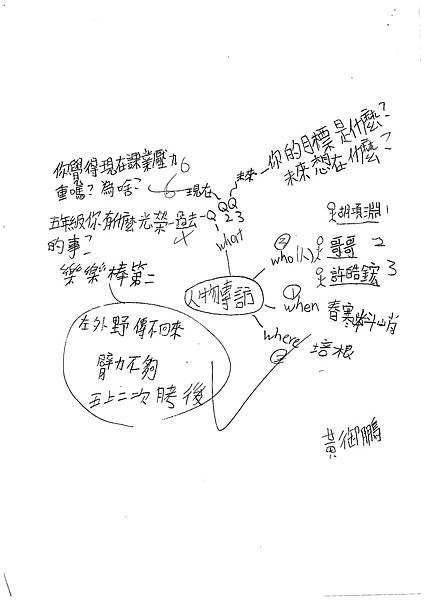 你覺得現在課業壓力6
重嗎?為啥?
6
現在
未來
你的目標是什麼?
未來想在什麼?
五年級你有什麼光榮
的事?
過去
4
Q
QQ
1
2 3
what
樂樂棒第二
人物專訪
②
who(人)
胡項淵 1
哥哥 2
許皓鋐 3
①
when
春寒料峭
where
培根
左外野傳不回來
臂力不夠
五上二次月考後
黃御鵬